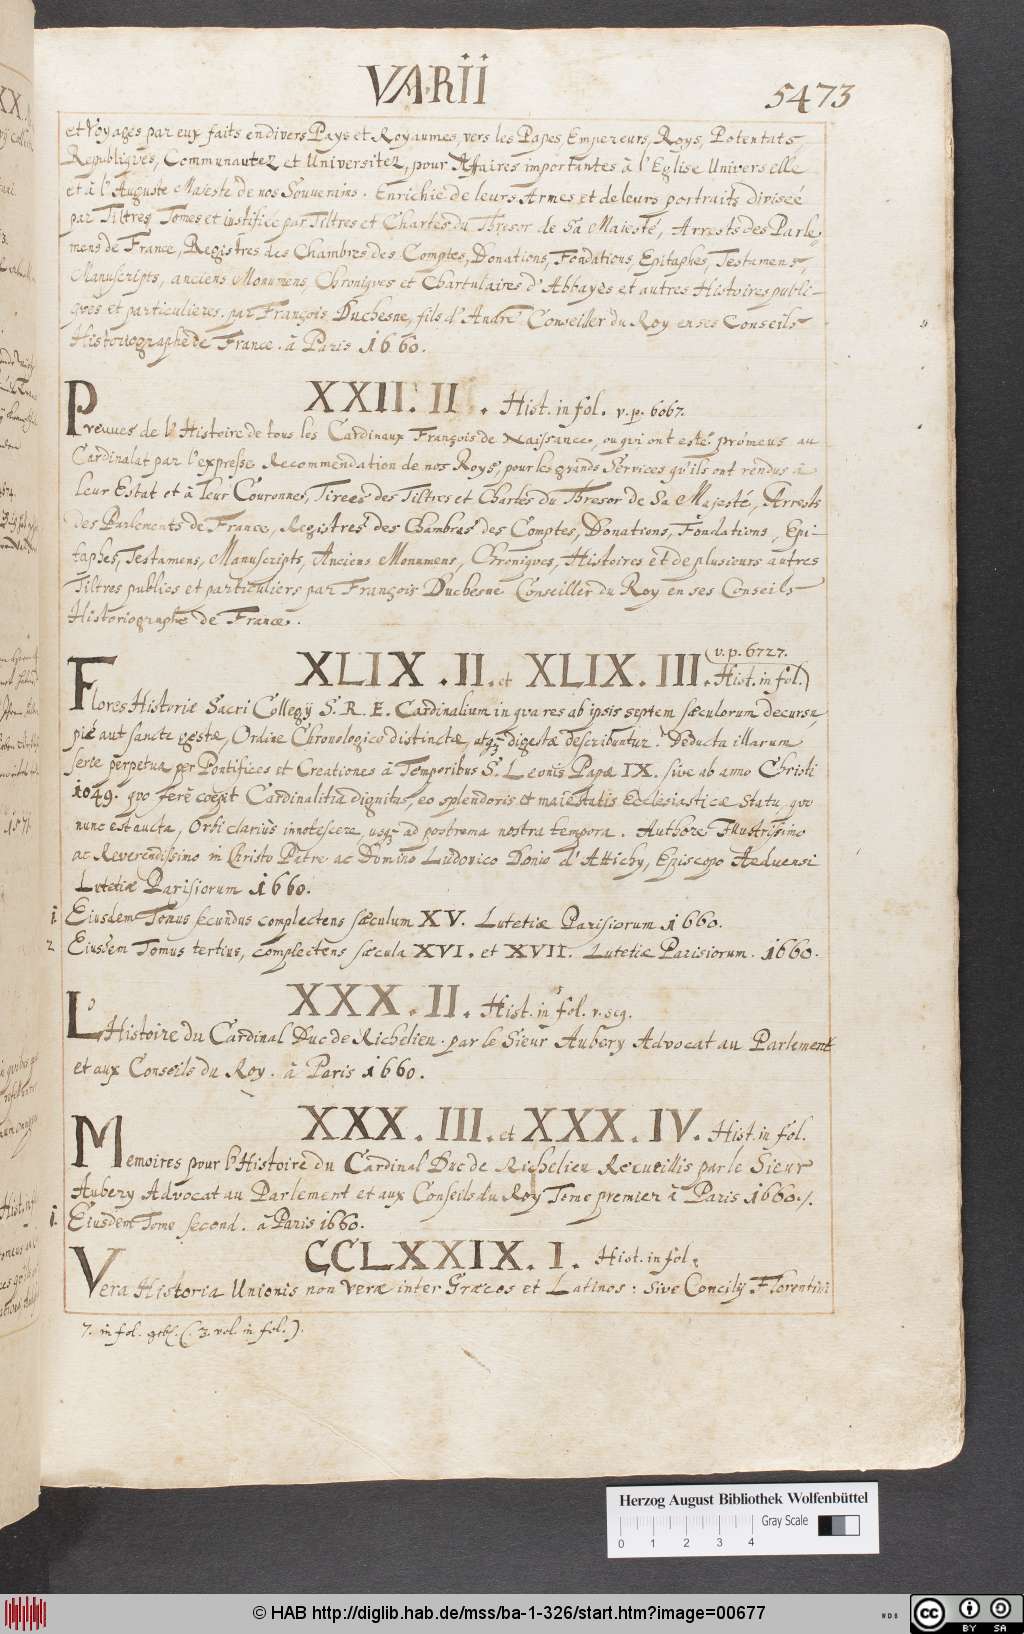 VARII
5473
et Voyages par eux faits en divers Pays et Royaumes, vers les Papes, Empereurs, Roys, Potentats,
Republiques, Communautez et Universitez, pour Affaires importantes à l'Eglise Universelle
et à l'Auguste Majesté de nos Souverains. Enrichie de leurs Armes et de leurs portraits divisée
par Tiltres Tomes et iustifiée par Tiltres et Chartes du Thresor de Sa Maiesté, Arrests des Parle-
mens de France, Registres des Chambres des Comptes, Donations, Fondations, Epitaphes, Testamens,
Manuscripts, anciens Monumens, Chroniques et Chartulaires d'Abbayes et autres Histoires publi-
ques et particulieres. par François Duchesne, fils d'André Conseiller du Roy en ses Conseils
Historiographe de France. à Paris 1660.
XXII. II. Hist. in fol. v. p. 6067.
Preuves de l'Histoire de tous les Cardinaux François de Naissance, ou qui ont esté prómeus au
Cardinalat par l'expresse Recommendation de nos Roys, pour les grands Services qu'ils ont rendus à
Leur Estat et à leur Couronnes, Tirees des Tiltres et Chartes du Thresor de Sa Majesté, Arrests
des Parlements de France, Registres des Chambres des Comptes, Donations, Fondations, Epi-
taphes, Testamens, Manuscripts, Anciens Monumens, Chroniques, Histoires et de plusieurs autres
Tiltres publics et particuliers par François Duchesne Conseiller du Roy en ses Conseils
Historiographe de France.
XLIX. II. et XLIX. III. (v. p. 6727.
Hist. in fol.)
Flores Historiæ Sacri Collegij S. R. E. Cardinalium in qua res ab ipsis septem sæculorum decursu
piè aut sancte gestæ, Ordine Chronologico distinctæ, atq; digestæ describuntur. Deducta illarum
serie perpetua per Pontifices et Creationes à Temporibus S. Leonis Papæ IX. sive ab anno Christi
1049. quo ferè coepit Cardinalitia dignitas, eo splendoris et maiestatis Ecclesiasticæ Statu, quo
nunc est aucta, Orbi clariùs innotescere, usq; ad postrema nostra tempora. Authore Illustrissimo
ac Reverendissimo in Christo Patre ac Domino Ludovico Donio d'Attichy, Episcopo Aeduensi
Lutetiæ Parisiorum 1660.
1. Eiusdem Tomus secundus complectens sæculum XV. Lutetiæ Parisiorum 1660.
2. Eiusdem Tomus tertius, complectens sæcula XVI. et XVII. Lutetiæ Parisiorum. 1660.
XXX. II. Hist. in fol. v. seq.
L'Histoire du Cardinal Duc de Richelieu. par le Sieur Aubery Advocat au Parlement
et aux Conseils du Roy. à Paris 1660.
XXX. III. et XXX. IV. Hist. in fol.
Memoires pour l'Histoire du Cardinal Duc de Richelieu Recueillis par le Sieur
Aubery Advocat au Parlement et aux Conseils du Roy Tome premier à Paris 1660./.
1. Eiusdem Tome second. à Paris 1660.
CCLXXIX. 1. Hist. in fol.
Vera Historia Unionis non veræ inter Græcos et Latinos: Sive Concilij Florentini
7. in fol. geb. (. 3. vol. in fol.).
Herzog August Bibliothek Wolfenbüttel
Gray Scale
0 1 2 3 4
© HAB http://diglib.hab.de/mss/ba-1-326/start.htm?image=00677
WDB
cc BY SA